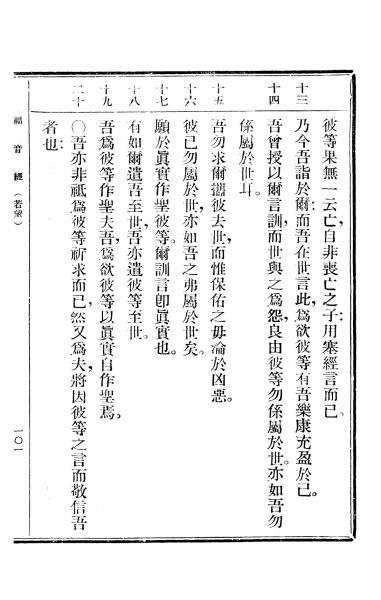 彼等果無一云亡、自非喪亡之子、用塞經言而已。
十三 乃今吾詣於爾、而吾在世言此、爲欲彼等有吾樂康充盈於己。
十四 吾曾授以爾言訓、而世與之爲怨、良由彼等勿係屬於世、亦如吾勿
係屬於世耳。
十五 吾勿求爾攜彼去世、而惟保佑之毋淪於凶惡。
十六 彼已勿屬於世、亦如吾之弗屬於世矣。
十七 願於眞實作聖彼等。爾訓言卽眞實也。
十八 有如爾遣吾至世、吾亦遣彼等至世。
十九 吾爲彼等作聖夫吾、爲欲彼等以眞實自作聖焉。
二十 〇吾亦非祗爲彼等祈求而已、然又爲夫、將因彼等之言而敬信吾
者也、
福音經（若望）
一〇一